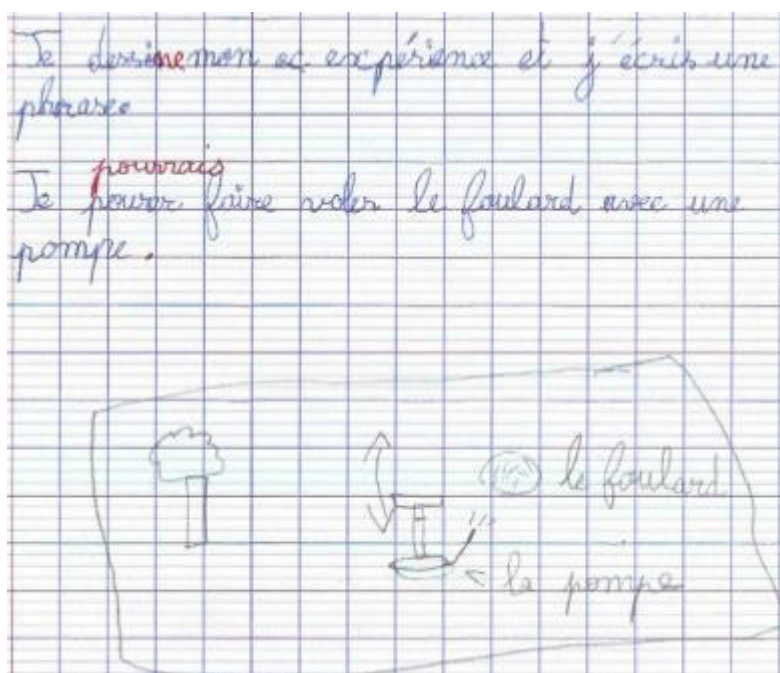 Je dessine mon ex expérience et j'écris une
phrase.
pourrais
Je pouvor faire voler le foulard avec une
pompe.
le foulard
la pompe